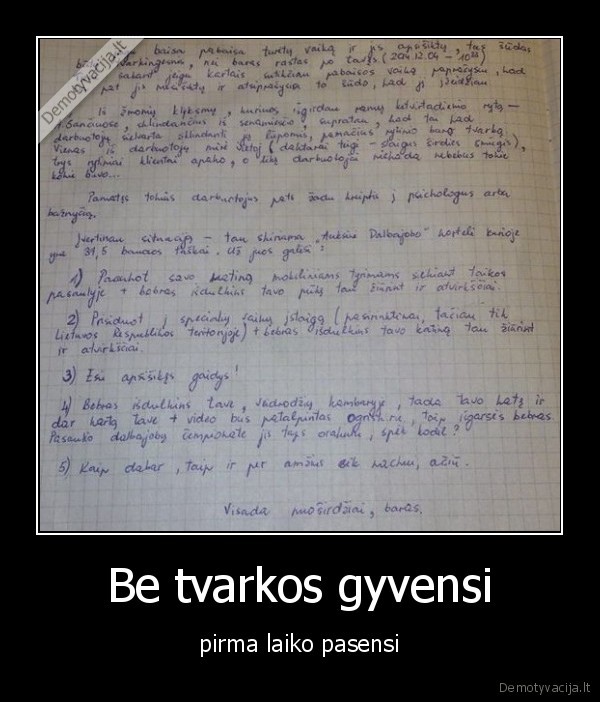 Demotyvacija.lt
baisa pabaisa turėtų vaiką ir jis apsišiktų, tas šūdas
būtų tvarkingesnis, nei baras rastas po tavęs (2014.12.04 -
sakant jeigu kartais sutikčiau pabaisos vaiką paprašyčiau, kad
pat jis nusišiktų ir atsiprašyčiau to šūdo, kad jį įžeidžiau.
Iš žmonių klyksmų, kuriuos išgirdau ramų ketvirtadienio rytą –
Šančiuose, sklindančius iš senamiesčio, supratau, kad tu kad
darbuotojų sieharta
Vienas iš darbuotojų mirė vietoj (daktarai teigė - staigus širdies smūgis),
trys rytiniai klientai apako, o likę darbuotojai niekada nebebus tokie
kokie buvo...
Pamatęs tokius darbuotojus pats žadu kreiptis į psichologus arba
bažnyčią.
Įvertinau situaciją – tau skiriama „Auksinė Dalbajobo" kortelė kurioje
yra 31,5 baudos taškai. Už juos gali:
1) Paaukot savo mobiliniams tyrimams siekiant taikos
pasaulyje + bebras išdulkins tavo tau žiūrint ir atvirkščiai.
2) Prisiduot į specialių vaikų įstaigą (pasirinktinai, tačiau tik
Lietuvos Respublikos teritorijoje) + bebras išdulkins tavo katiną tau žiūrint
ir atvirkščiai.
3) Esi apsišikęs gaidys!
4) Bebras išdulkins tave, veidrodžių kambaryje, tada tavo katę ir
dar kartą tave + video bus patalpintas taip išgarsės bebras.
Pasaulio dalbajobų čempionate jis taps orakulu, spėk kodėl?
5) Kaip dabar, taip ir per amžius eik nachui, ačiū.
Visada nuoširdžiai, baras.
Be tvarkos gyvensi
pirma laiko pasensi
Demotyvacija.lt